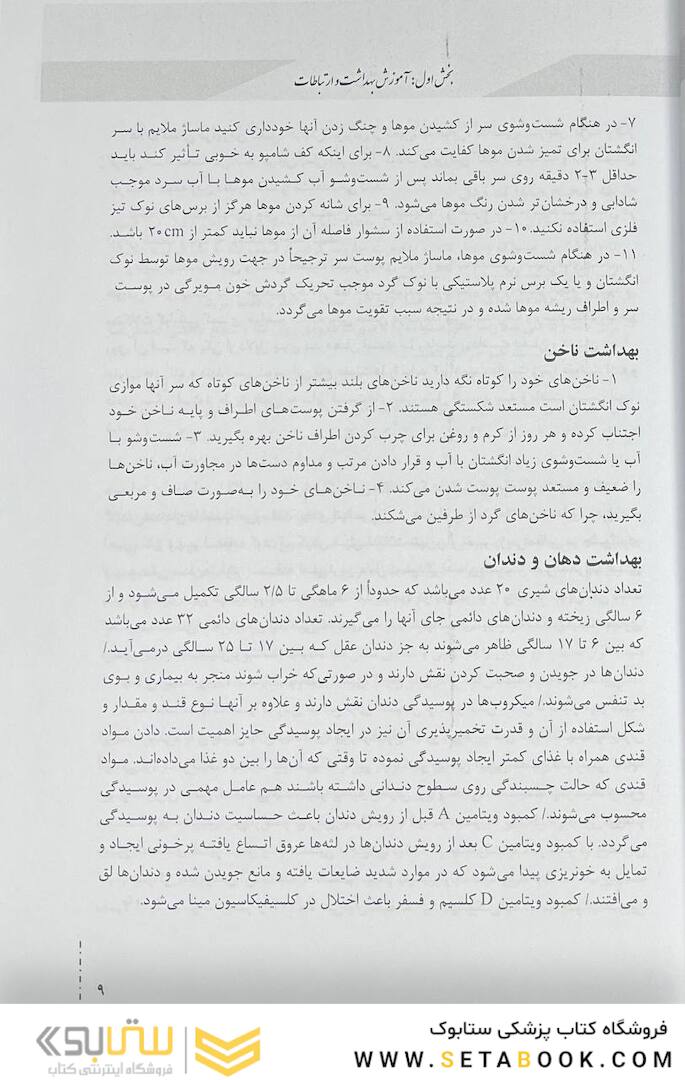 بخش اول: آموزش بهداشت و ارتباطات
۷- در هنگام شست‌وشوی سر از کشیدن موها و چنگ زدن آنها خودداری کنید ماساژ ملایم با سر
انگشتان برای تمیز شدن موها کفایت می‌کند. ۸- برای اینکه کف شامپو به خوبی تأثیر کند باید
حداقل ۳-۲ دقیقه روی سر باقی بماند پس از شست‌وشو آب کشیدن موها با آب سرد موجب
شادابی و درخشان‌تر شدن رنگ موها می‌شود. ۹- برای شانه کردن موها هرگز از برس‌های نوک تیز
فلزی استفاده نکنید. ۱۰- در صورت استفاده از سشوار فاصله آن از موها نباید کمتر از ۲۰cm باشد.
۱۱- در هنگام شست‌وشوی موها، ماساژ ملایم پوست سر ترجیحاً در جهت رویش موها توسط نوک
انگشتان و یا یک برس نرم پلاستیکی با نوک گرد موجب تحریک گردش خون مویرگی در پوست
سر و اطراف ریشه موها شده و در نتیجه سبب تقویت موها می‌گردد.
بهداشت ناخن
۱- ناخن‌های خود را کوتاه نگه دارید ناخن‌های بلند بیشتر از ناخن‌های کوتاه که سر آنها موازی
نوک انگشتان است مستعد شکستگی هستند. ۲- از گرفتن پوست‌های اطراف و پایه ناخن خود
اجتناب کرده و هر روز از کرم و روغن برای چرب کردن اطراف ناخن بهره بگیرید. ۳- شست‌وشو با
آب یا شست‌وشوی زیاد انگشتان با آب و قرار دادن مرتب و مداوم دست‌ها در مجاورت آب، ناخن‌ها
را ضعیف و مستعد پوست پوست شدن می‌کند. ۴- ناخن‌های خود را به‌صورت صاف و مربعی
بگیرید، چرا که ناخن‌های گرد از طرفین می‌شکند.
بهداشت دهان و دندان
تعداد دندان‌های شیری ۲۰ عدد می‌باشد که حدوداً از ۶ ماهگی تا ۲/۵ سالگی تکمیل می‌شود و از
۶ سالگی ریخته و دندان‌های دائمی جای آنها را می‌گیرند. تعداد دندان‌های دائمی ۳۲ عدد می‌باشد
که بین ۶ تا ۱۷ سالگی ظاهر می‌شوند به جز دندان عقل که بین ۱۷ تا ۲۵ سالگی درمی‌آید./
دندان‌ها در جویدن و صحبت کردن نقش دارند و در صورتی‌که خراب شوند منجر به بیماری و بوی
بد تنفس می‌شوند./ میکروب‌ها در پوسیدگی دندان نقش دارند و علاوه بر آنها نوع قند و مقدار و
شکل استفاده از آن و قدرت تخمیرپذیری آن نیز در ایجاد پوسیدگی حایز اهمیت است. دادن مواد
قندی همراه با غذای کمتر ایجاد پوسیدگی نموده تا وقتی که آن‌ها را بین دو غذا می‌داده‌اند. مواد
قندی که حالت چسبندگی روی سطوح دندانی داشته باشند هم عامل مهمی در پوسیدگی
محسوب می‌شوند./ کمبود ویتامین A قبل از رویش دندان باعث حساسیت دندان به پوسیدگی
می‌گردد. با کمبود ویتامین C بعد از رویش دندان‌ها در لثه‌ها عروق اتساع یافته پرخونی ایجاد و
تمایل به خونریزی پیدا می‌شود که در موارد شدید ضایعات یافته و مانع جویدن شده و دندان‌ها لق
و می‌افتند./ کمبود ویتامین D کلسیم و فسفر باعث اختلال در کلسیفیکاسیون مینا می‌شود.
۹
فروشگاه کتاب پزشکی ستابوک
WWW.SETABOOK.COM
ستابوک
فروشگاه اینترنتی کتاب